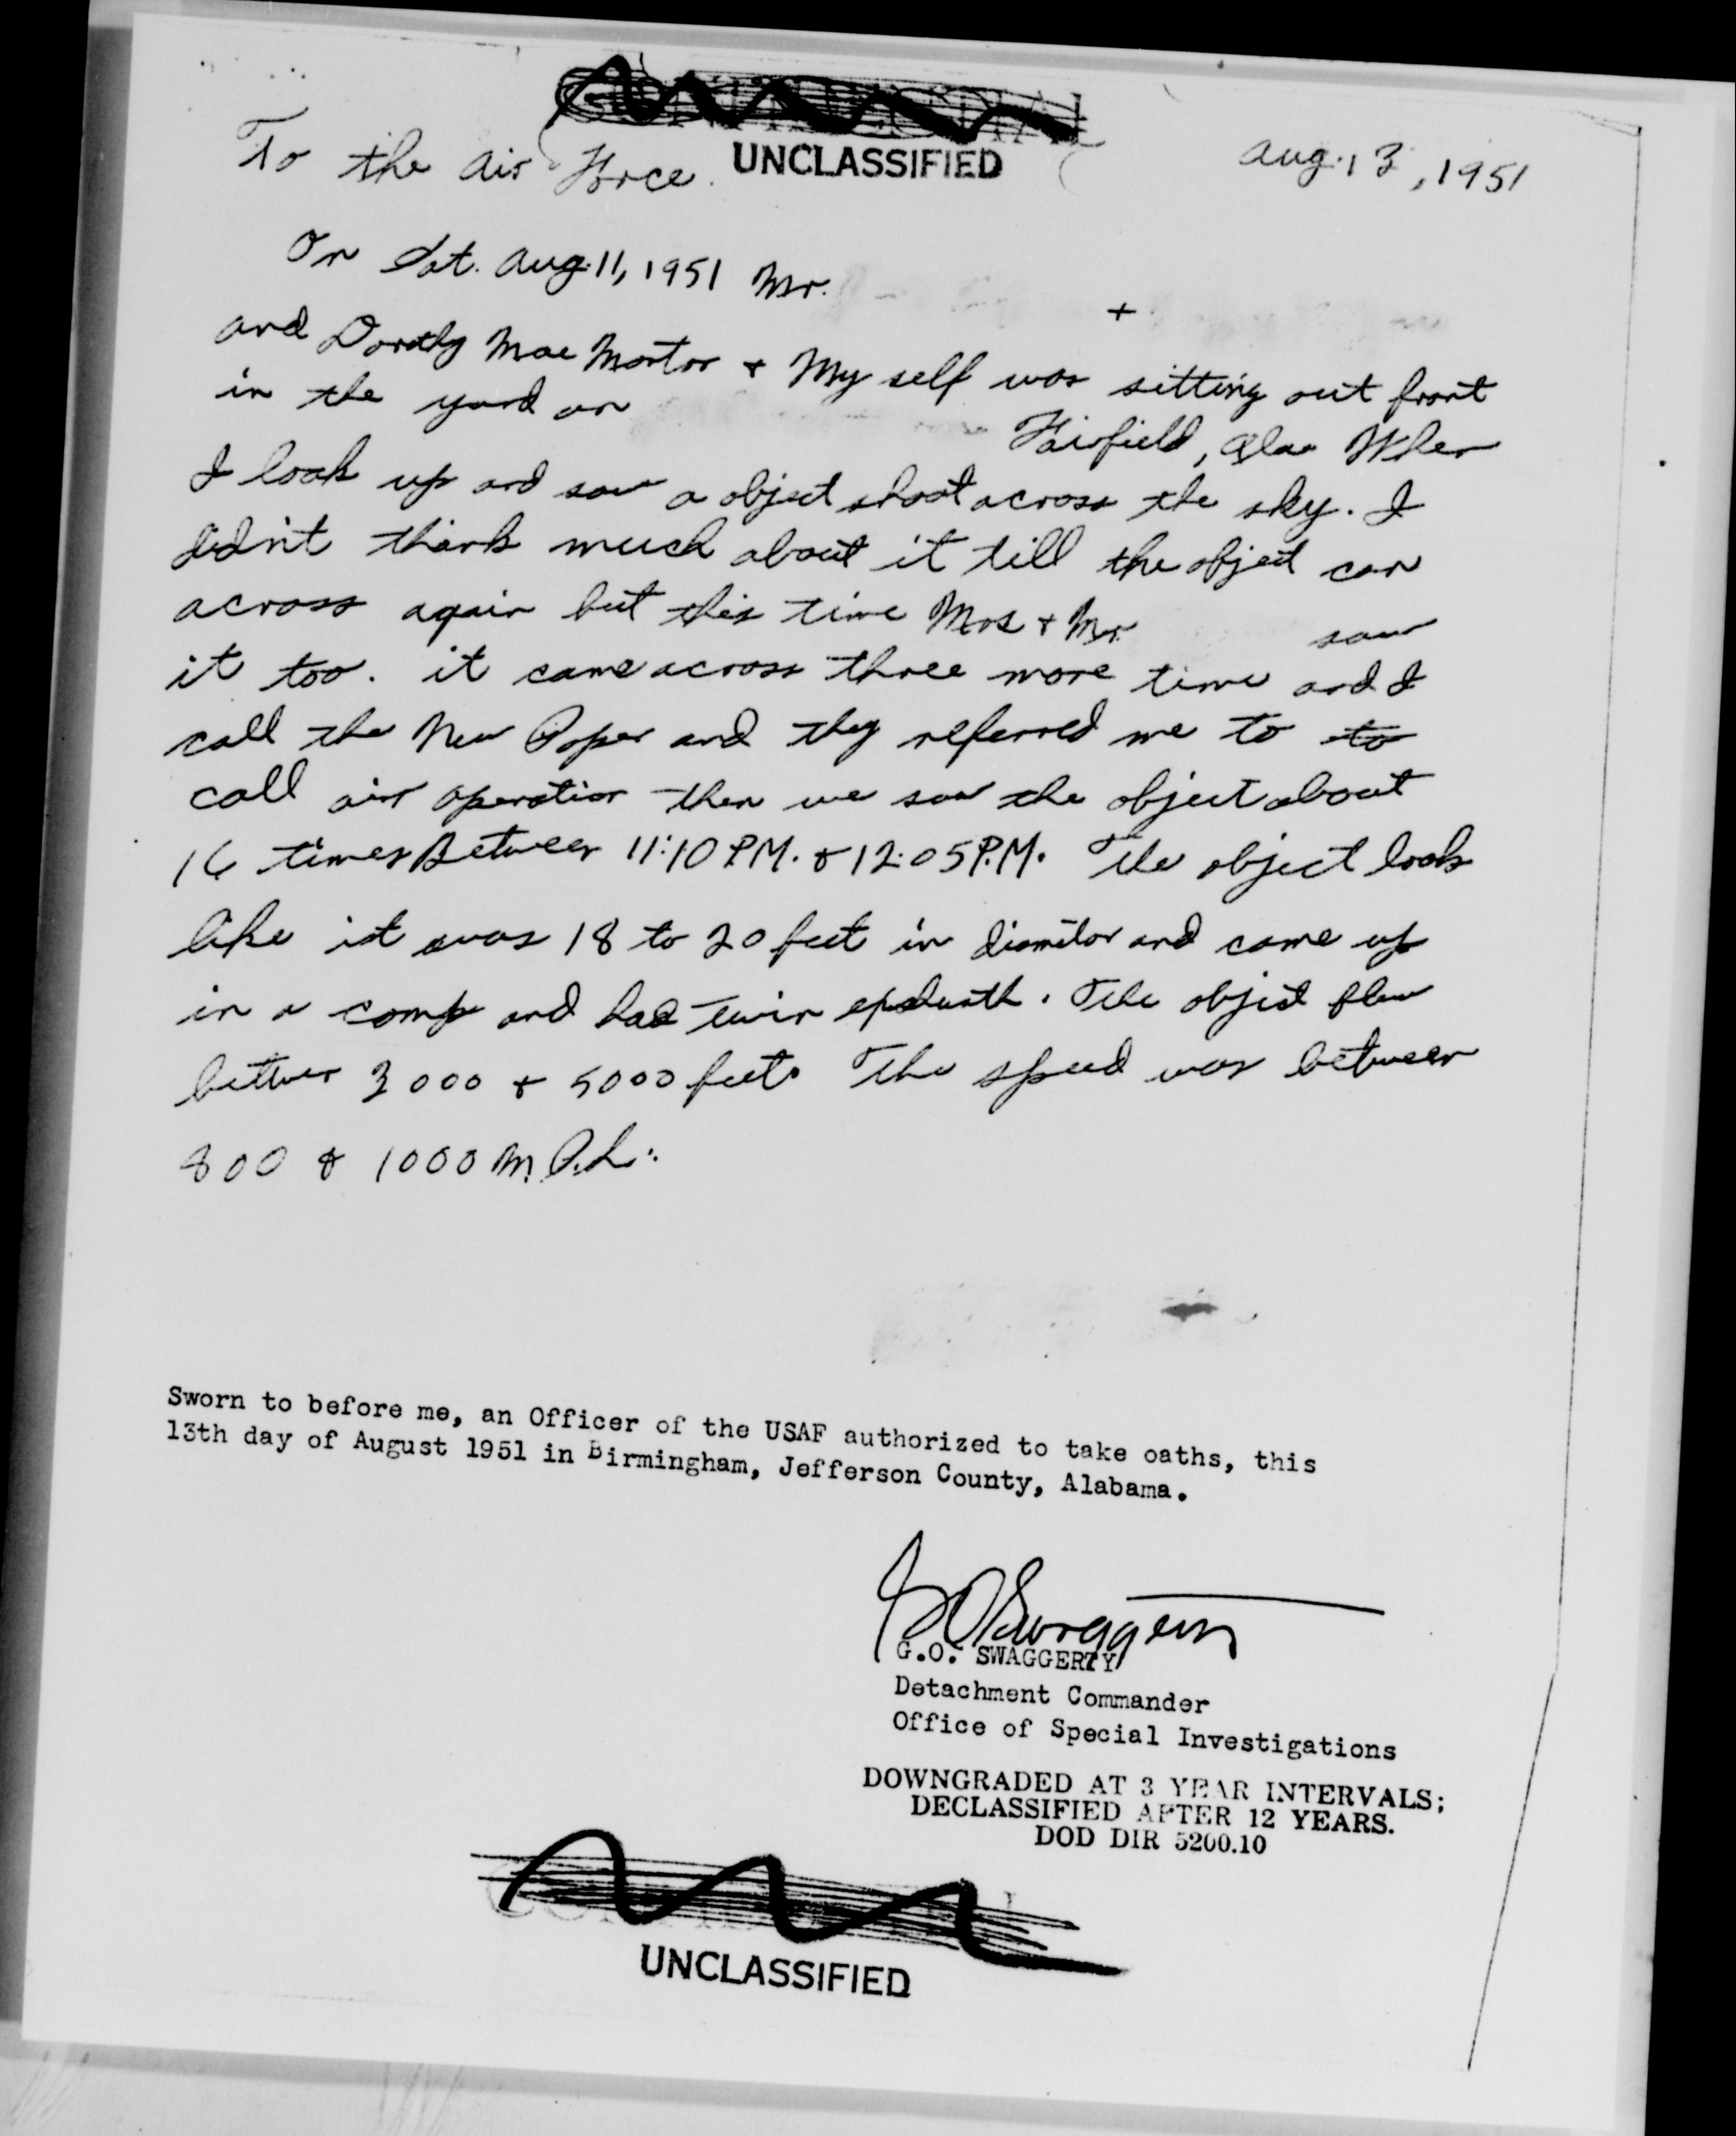 CONFIDENTIAL
UNCLASSIFIED
To the Air Force. Aug. 13, 1951
On Sat. Aug. 11, 1951 Mr. +
and Dorothy Mae + My self was sitting out front
in the yard on Fairfield, Ala When
I look up and saw a object shoot across the sky. I
didn't think much about it till the object can
across again but this time Mrs + Mr. saw
it too. it came across three more time and I
call the New Paper and they referred me to to
call air operation then we saw the object about
16 times Between 11:10 PM. & 12:05 P.M. The object look
like it was 18 to 20 feet in diamitor and came up
in a comp and had twin . The object flew
3000 + 5000 feet. The speed was between
800 & 1000 M.P.h.
Sworn to before me, an Officer of the USAF authorized to take oaths, this
13th day of August 1951 in Birmingham, Jefferson County, Alabama.
G.O. SWAGGERTY
Detachment Commander
Office of Special Investigations
DOWNGRADED AT 3 YEAR INTERVALS;
DECLASSIFIED AFTER 12 YEARS.
DOD DIR 5200.10
CONFIDENTIAL
UNCLASSIFIED